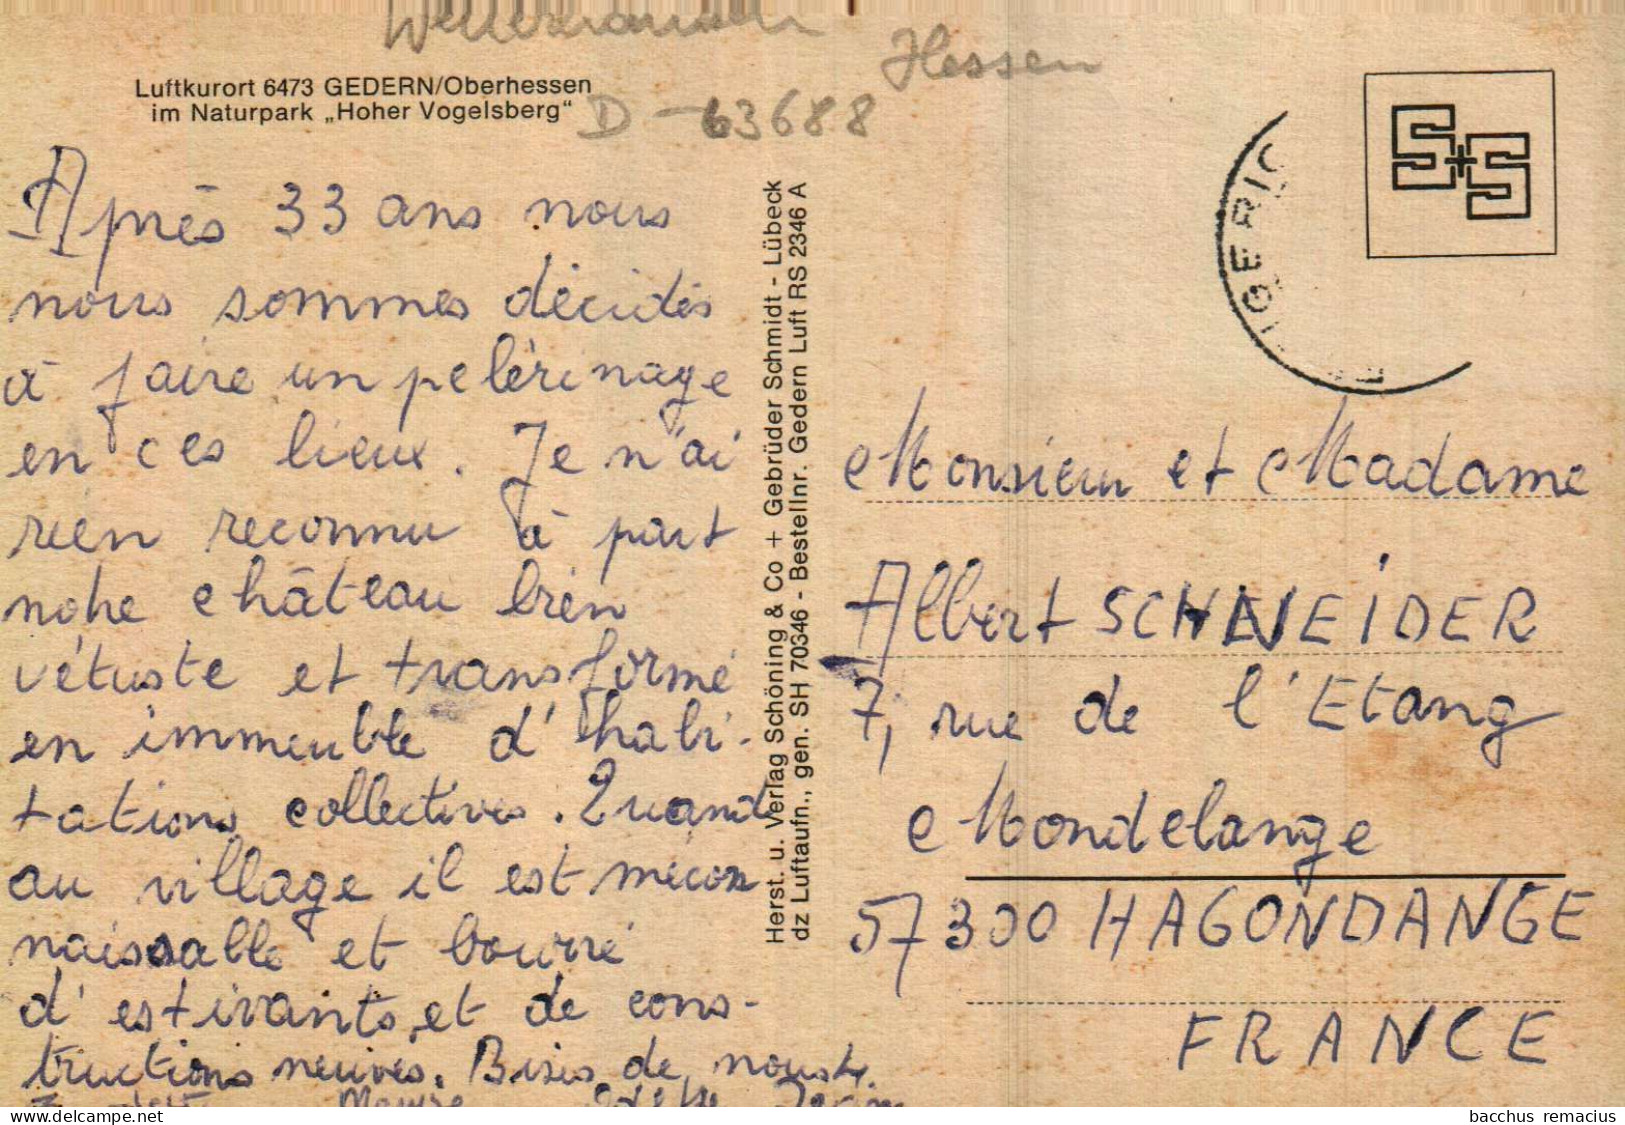 Hessen
D-63688
Luftkurort 6473 GEDERN/Oberhessen
im Naturpark „Hoher Vogelsberg“
Après 33 ans nous
nous sommes décidés
à faire un pelèrinage
en ces lieux. Je n'ai
rien reconnu à part
notre château bien
vétuste et transformé
en immeuble d'habi-
tations collectives. Quand
au village il est mécon
naissable et bourré
d'estivants, et de cons-
tructions neuves. Bises de nous
Herst. u. Verlag Schöning & Co + Gebrüder Schmidt - Lübeck
dz Luftaufn., gen. SH 70346 - Bestellnr. Gedern Luft RS 2346 A
S+S
Monsieur et Madame
Albert SCHNEIDER
7, rue de l'Etang
Mondelange
57300 HAGONDANGE
FRANCE
bacchus remacius